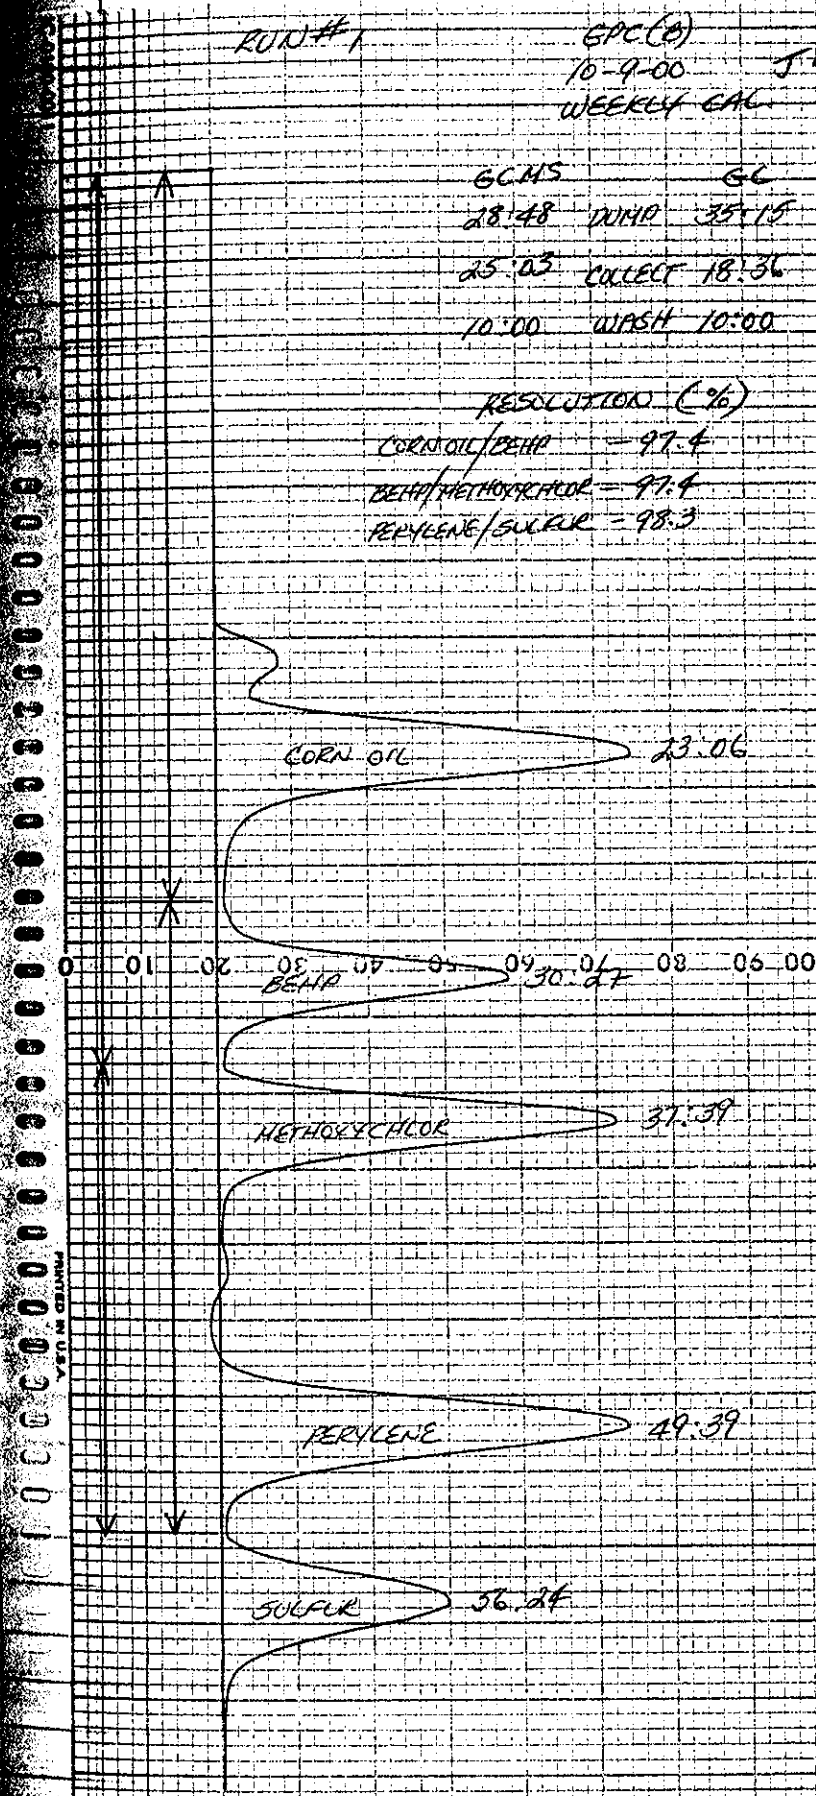 RUN # 1
GPC (B)
10-9-00
WEEKLY CAL.
GCMS GC
28:48 DUMP 35:15
25:03 COLLECT 18:36
10:00 WASH 10:00
RESOLUTION (%)
CORN OIL/BEHP = 97.4
BEHP/METHOXYCHLOR = 97.4
PERYLENE/SULFUR - 98.3
CORN OIL 23:06
0 10 20 30 40 50 60 70 80 90 00
BEHP 30:27
METHOXYCHLOR 37:39
PRINTED IN U.S.A.
PERYLENE 49:39
SULFUR 56:24